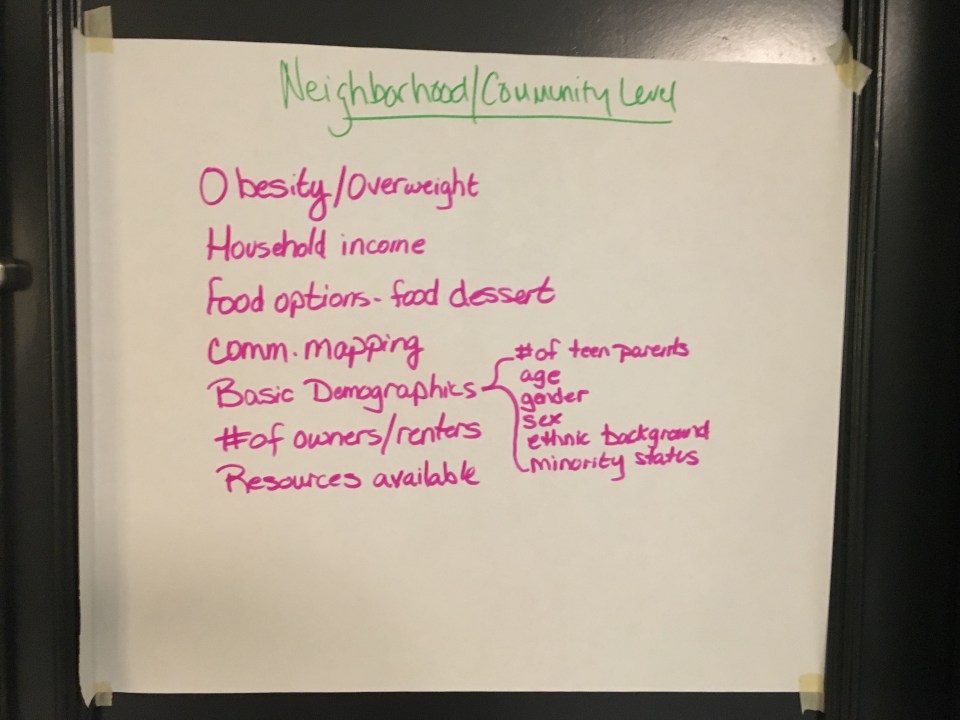 Neighborhood/Community Level
Obesity/Overweight
Household income
Food options- food dessert
Comm. mapping
Basic Demographics
#of teen parents
age
gender
sex
ethnic background
minority status
#of owners/renters
Resources available